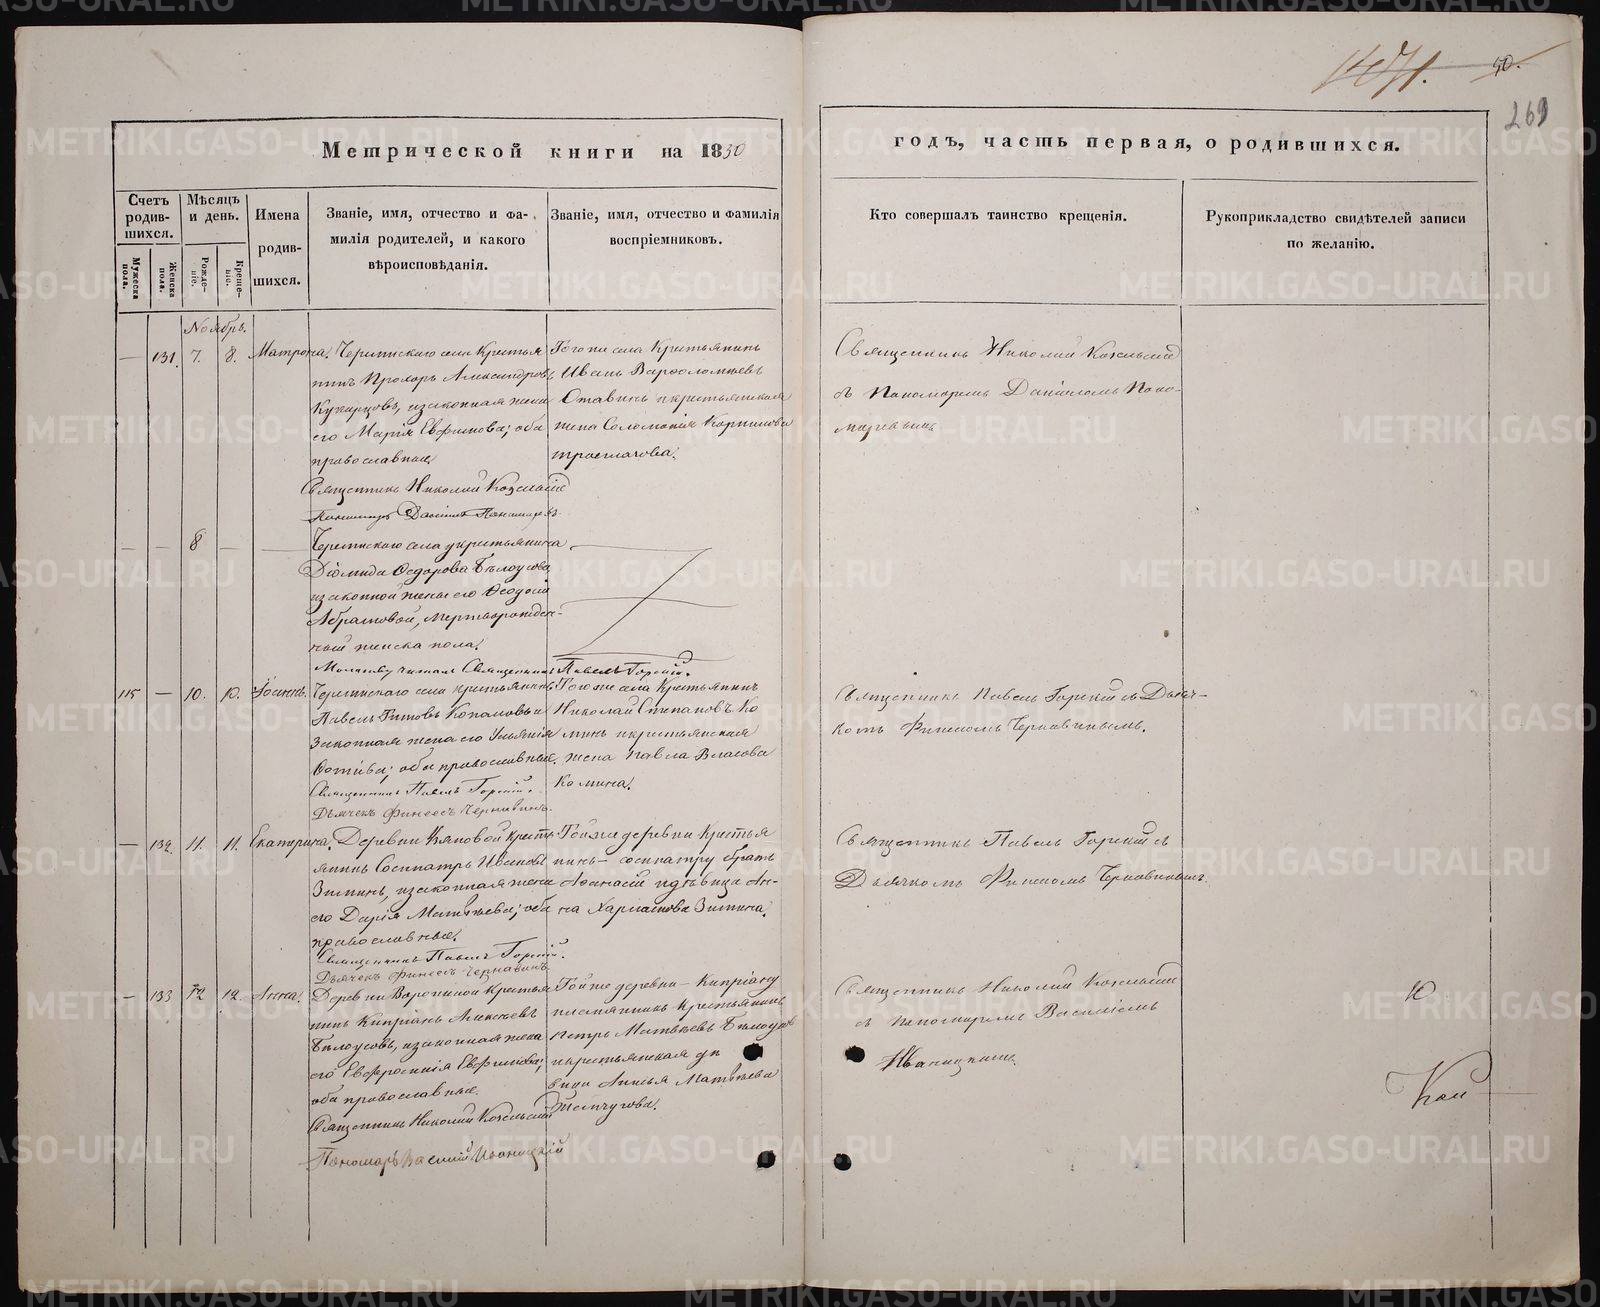 1471.
50.
269
Метрической книги на 1850
годъ, часть первая, о родившихся.
Счетъ родив-шихся.
Мѣсяцъ и день.
Имена родив-шихся.
Званіе, имя, отчество и фа-
милія родителей, и какого
вѣроисповѣданія.
Званіе, имя, отчество и фамилія
воспріемниковъ.
Кто совершалъ таинство крещенія.
Рукоприкладство свидѣтелей записи
по желанію.
Мужеска пола.
Женска пола.
Рожде-ніе.
Креще-ніе.
Ноябрь.
— 131. 7. 8. Матрона.
села Крестья
нинъ Прохоръ Александровъ
Кухарцовъ, и законная жена
его Марія Евфимова; оба
православные.
Священникъ Николай Козельскій
Пономарь Даніилъ Пономаревъ
Того же села Крестьянинъ
Иванъ Варфоломѣевъ
и крестьянская
жена Соломонія Корнилова
Священникъ Николай Козельскій
съ Пономаремъ Даніиломъ Поно-
маревымъ
— — 8 — —
села у крестьянина
Діомида Ѳедорова Бѣлоусова
изъ законной жены его Ѳеодосіи
Абрамовой, мертворожден-
ный женска пола.
Молитву читалъ Священникъ Павелъ Горскій.
115 — 10. 10. Іоаннъ.
села крестьянинъ
Павелъ Титовъ
Законная жена его Ульянія
Фотіева; оба православные.
Священникъ Павелъ Горскій.
Дьячекъ Финеесъ Чернавинъ.
Того же села Крестьянинъ
Николай Степановъ Ко
минъ и крестьянская
жена Павла Власова
Комина.
Священникъ Павелъ Горскій съ Дьяч-
комъ Финеесомъ Чернавинымъ.
— 132. 11. 11. Екатерина.
Деревни Крестья
янинъ Сосипатръ Ивановъ
Зиминъ, и законная жена
его Дарія Матвѣева; оба
православные.
Священникъ Павелъ Горскій.
Дьячекъ Финеесъ Чернавинъ
Той же деревни Крестья
нинъ — сосипатру братъ
Афанасій и дѣвица Ан-
на Харлампова Зимина.
Священникъ Павелъ Горскій съ
Дьячкомъ Финеесомъ Чернавинымъ.
— 133 12 12. Анна.
Деревни Ворониной Крестья
нинъ Кипріанъ Алексѣевъ
Бѣлоусовъ, и законная жена
его Евфросинія Евфимова;
оба православные.
Священникъ Николай Козельскій
Пономарь Василій Иваницкій
Той же деревни — Кипріану
племянникъ Крестьянинъ
Петръ Матвѣевъ Бѣлоусовъ
и крестьянская дѣ
вица Матвѣева
Жемчугова.
Священникъ Николай Козельскій
съ пономаремъ Василіемъ
Иваницкимъ.
10
METRIKI.GASO-URAL.RU